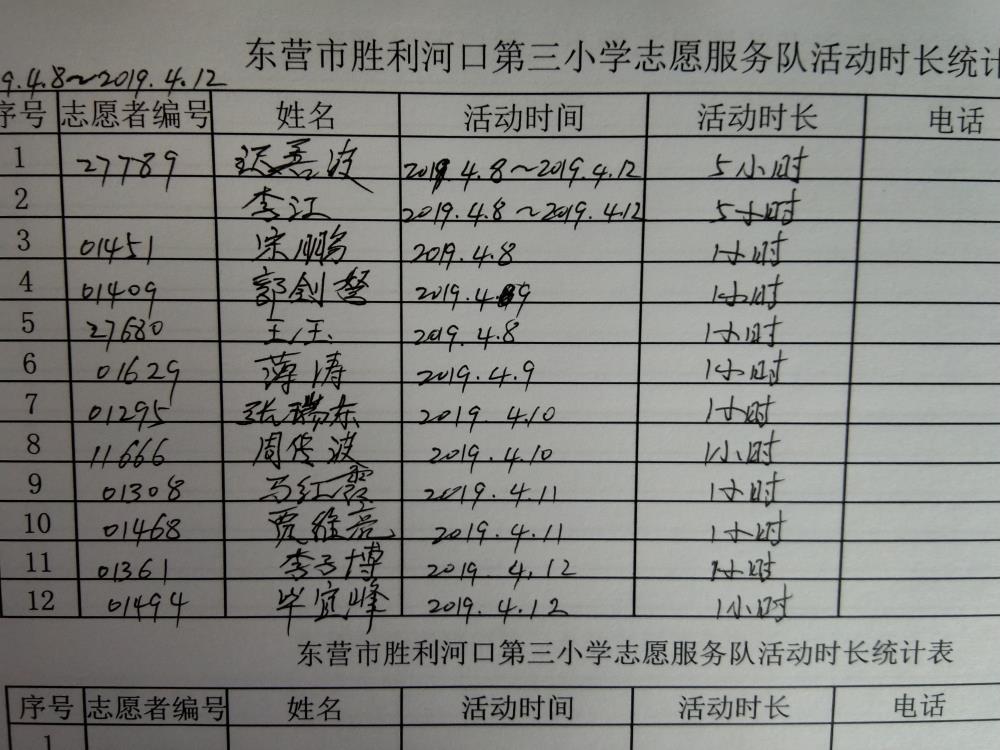 东营市胜利河口第三小学志愿服务队活动时长统计
9.4.8～2019.4.12
序号 志愿者编号 姓名 活动时间 活动时长 电话
1 27789 善波 2019.4.8～2019.4.12 5小时
2 李江 2019.4.8～2019.4.12 5小时
3 01451 宋鹏 2019.4.8 1小时
4 01409 郭剑 2019.4.9 1小时
5 27680 王 2019.4.8 1小时
6 01629 薄涛 2019.4.9 1小时
7 01295 张瑞东 2019.4.10 1小时
8 11666 周传波 2019.4.10 1小时
9 01308 马红霞 2019.4.11 1小时
10 01468 贾维亮 2019.4.11 1小时
11 01361 李子博 2019.4.12 1小时
12 01494 毕宜峰 2019.4.12 1小时
东营市胜利河口第三小学志愿服务队活动时长统计表
序号 志愿者编号 姓名 活动时间 活动时长 电话
1